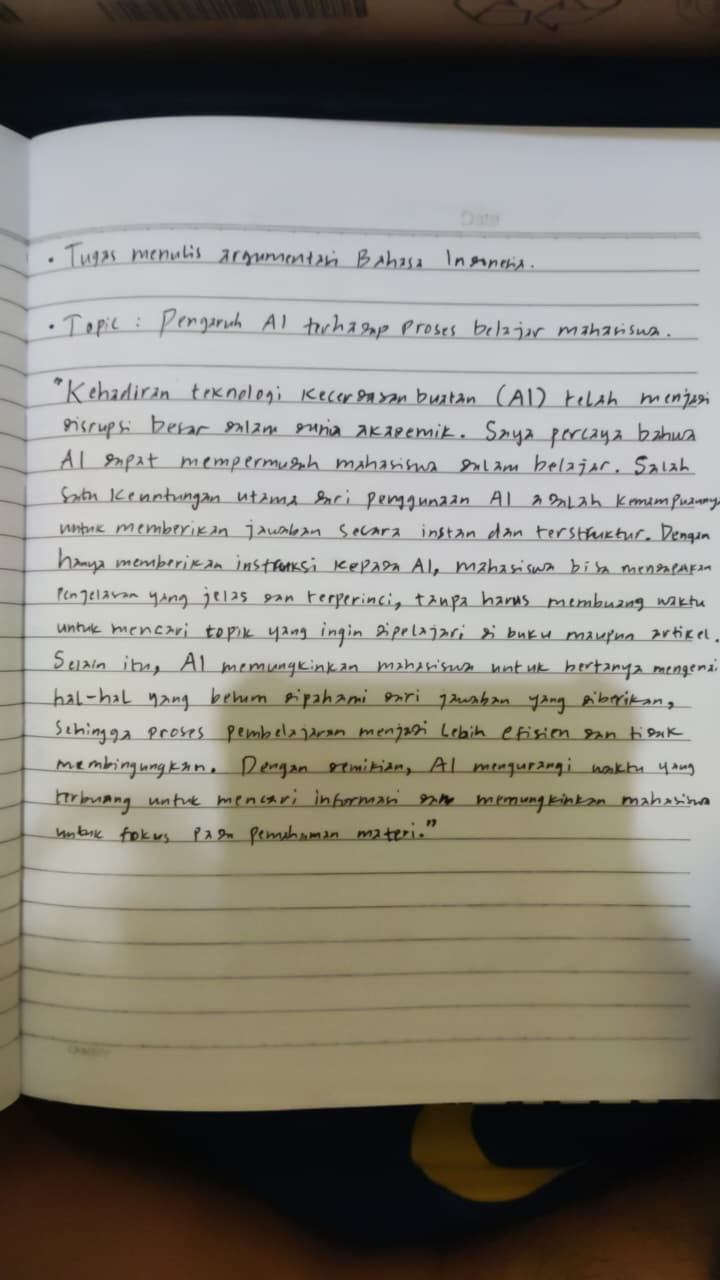 • Tugas menulis argumentasi Bahasa Indonesia.
• Topic : Pengaruh AI terhadap proses belajar mahasiswa.
"Kehadiran teknologi kecerdasan buatan (AI) telah menjadi
disrupsi besar dalam dunia akademik. Saya percaya bahwa
AI dapat mempermudah mahasiswa dalam belajar. Salah
satu keuntungan utama dari penggunaan AI adalah kemampuannya
untuk memberikan jawaban secara instan dan terstruktur. Dengan
hanya memberikan instruksi kepada AI, mahasiswa bisa mendapatkan
penjelasan yang jelas dan terperinci, tanpa harus membuang waktu
untuk mencari topik yang ingin dipelajari di buku maupun artikel.
Selain itu, AI memungkinkan mahasiswa untuk bertanya mengenai
hal-hal yang belum dipahami dari jawaban yang diberikan,
Sehingga proses pembelajaran menjadi lebih efisien dan tidak
membingungkan. Dengan demikian, AI mengurangi waktu yang
terbuang untuk mencari informasi dan memungkinkan mahasiswa
untuk fokus pada pemahaman materi."